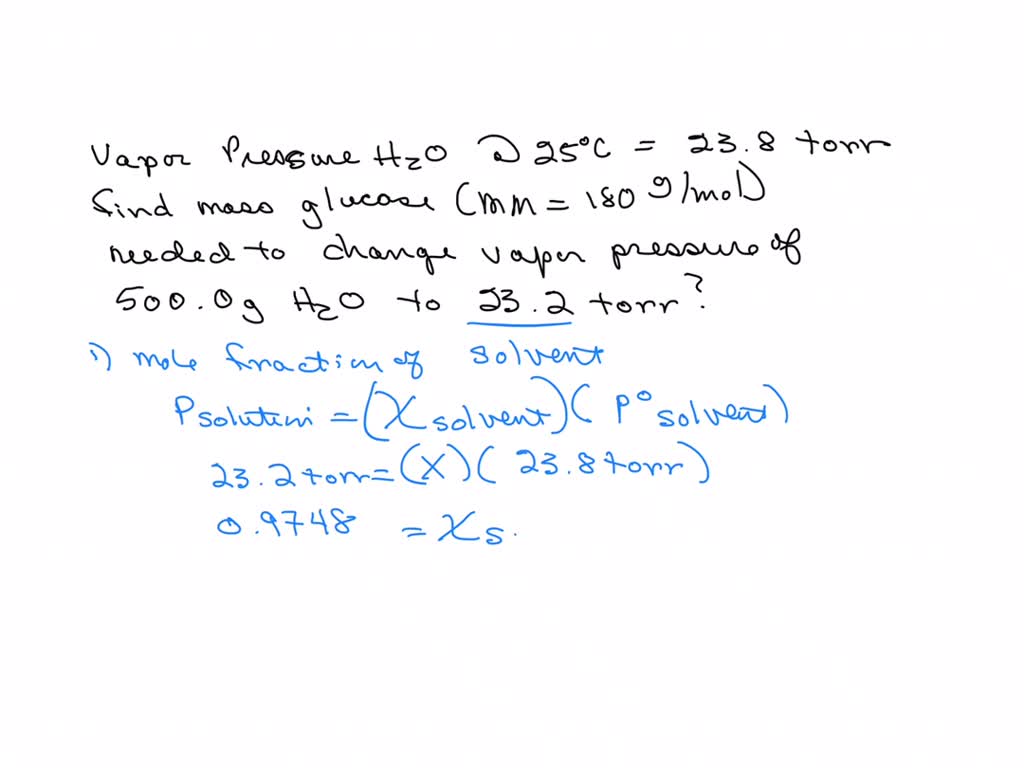 Vapor Pressure H₂O @ 25°C = 23.8 torr
find mass glucose (mm = 180 g/mol)
needed to change vapor pressure of
500.0g H₂O to 23.2 torr?
1) mole fraction of solvent
Psolution = (Xsolvent)(P°solvent)
23.2 torr = (X)(23.8 torr)
0.9748 = Xs.